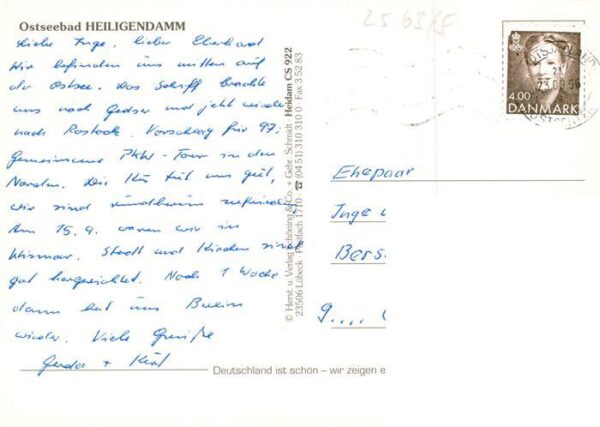 25 63/5
Ostseebad HEILIGENDAMM
Liebe Inge, lieber Eberhard
Wir befinden uns mitten auf
der Ostsee. Das Schiff brachte
uns nach Gedser und jetzt wieder
nach Rostock. Vorschlag für 97:
Gemeinsame PKW-Tour in den
Norden. Die Kur tut uns gut,
wir sind rundherum zufrieden.
Am 15.9. waren wir in
Wismar. Stadt und Kirchen sind
gut hergerichtet. Noch 1 Woche
dann hat uns
wieder. Viele Grüße
Gerda + Kurt
© Herst. u. Verlag Schöning & Co. + Gebr. Schmidt · Heidam CS 922
23506 Lübeck · Postfach 1710 · ☎ (04 51) 310 310 0 · Fax 3 52 83
4.00
DANMARK
Ehepaar
Inge
Bers
9....
Deutschland ist schön – wir zeigen e